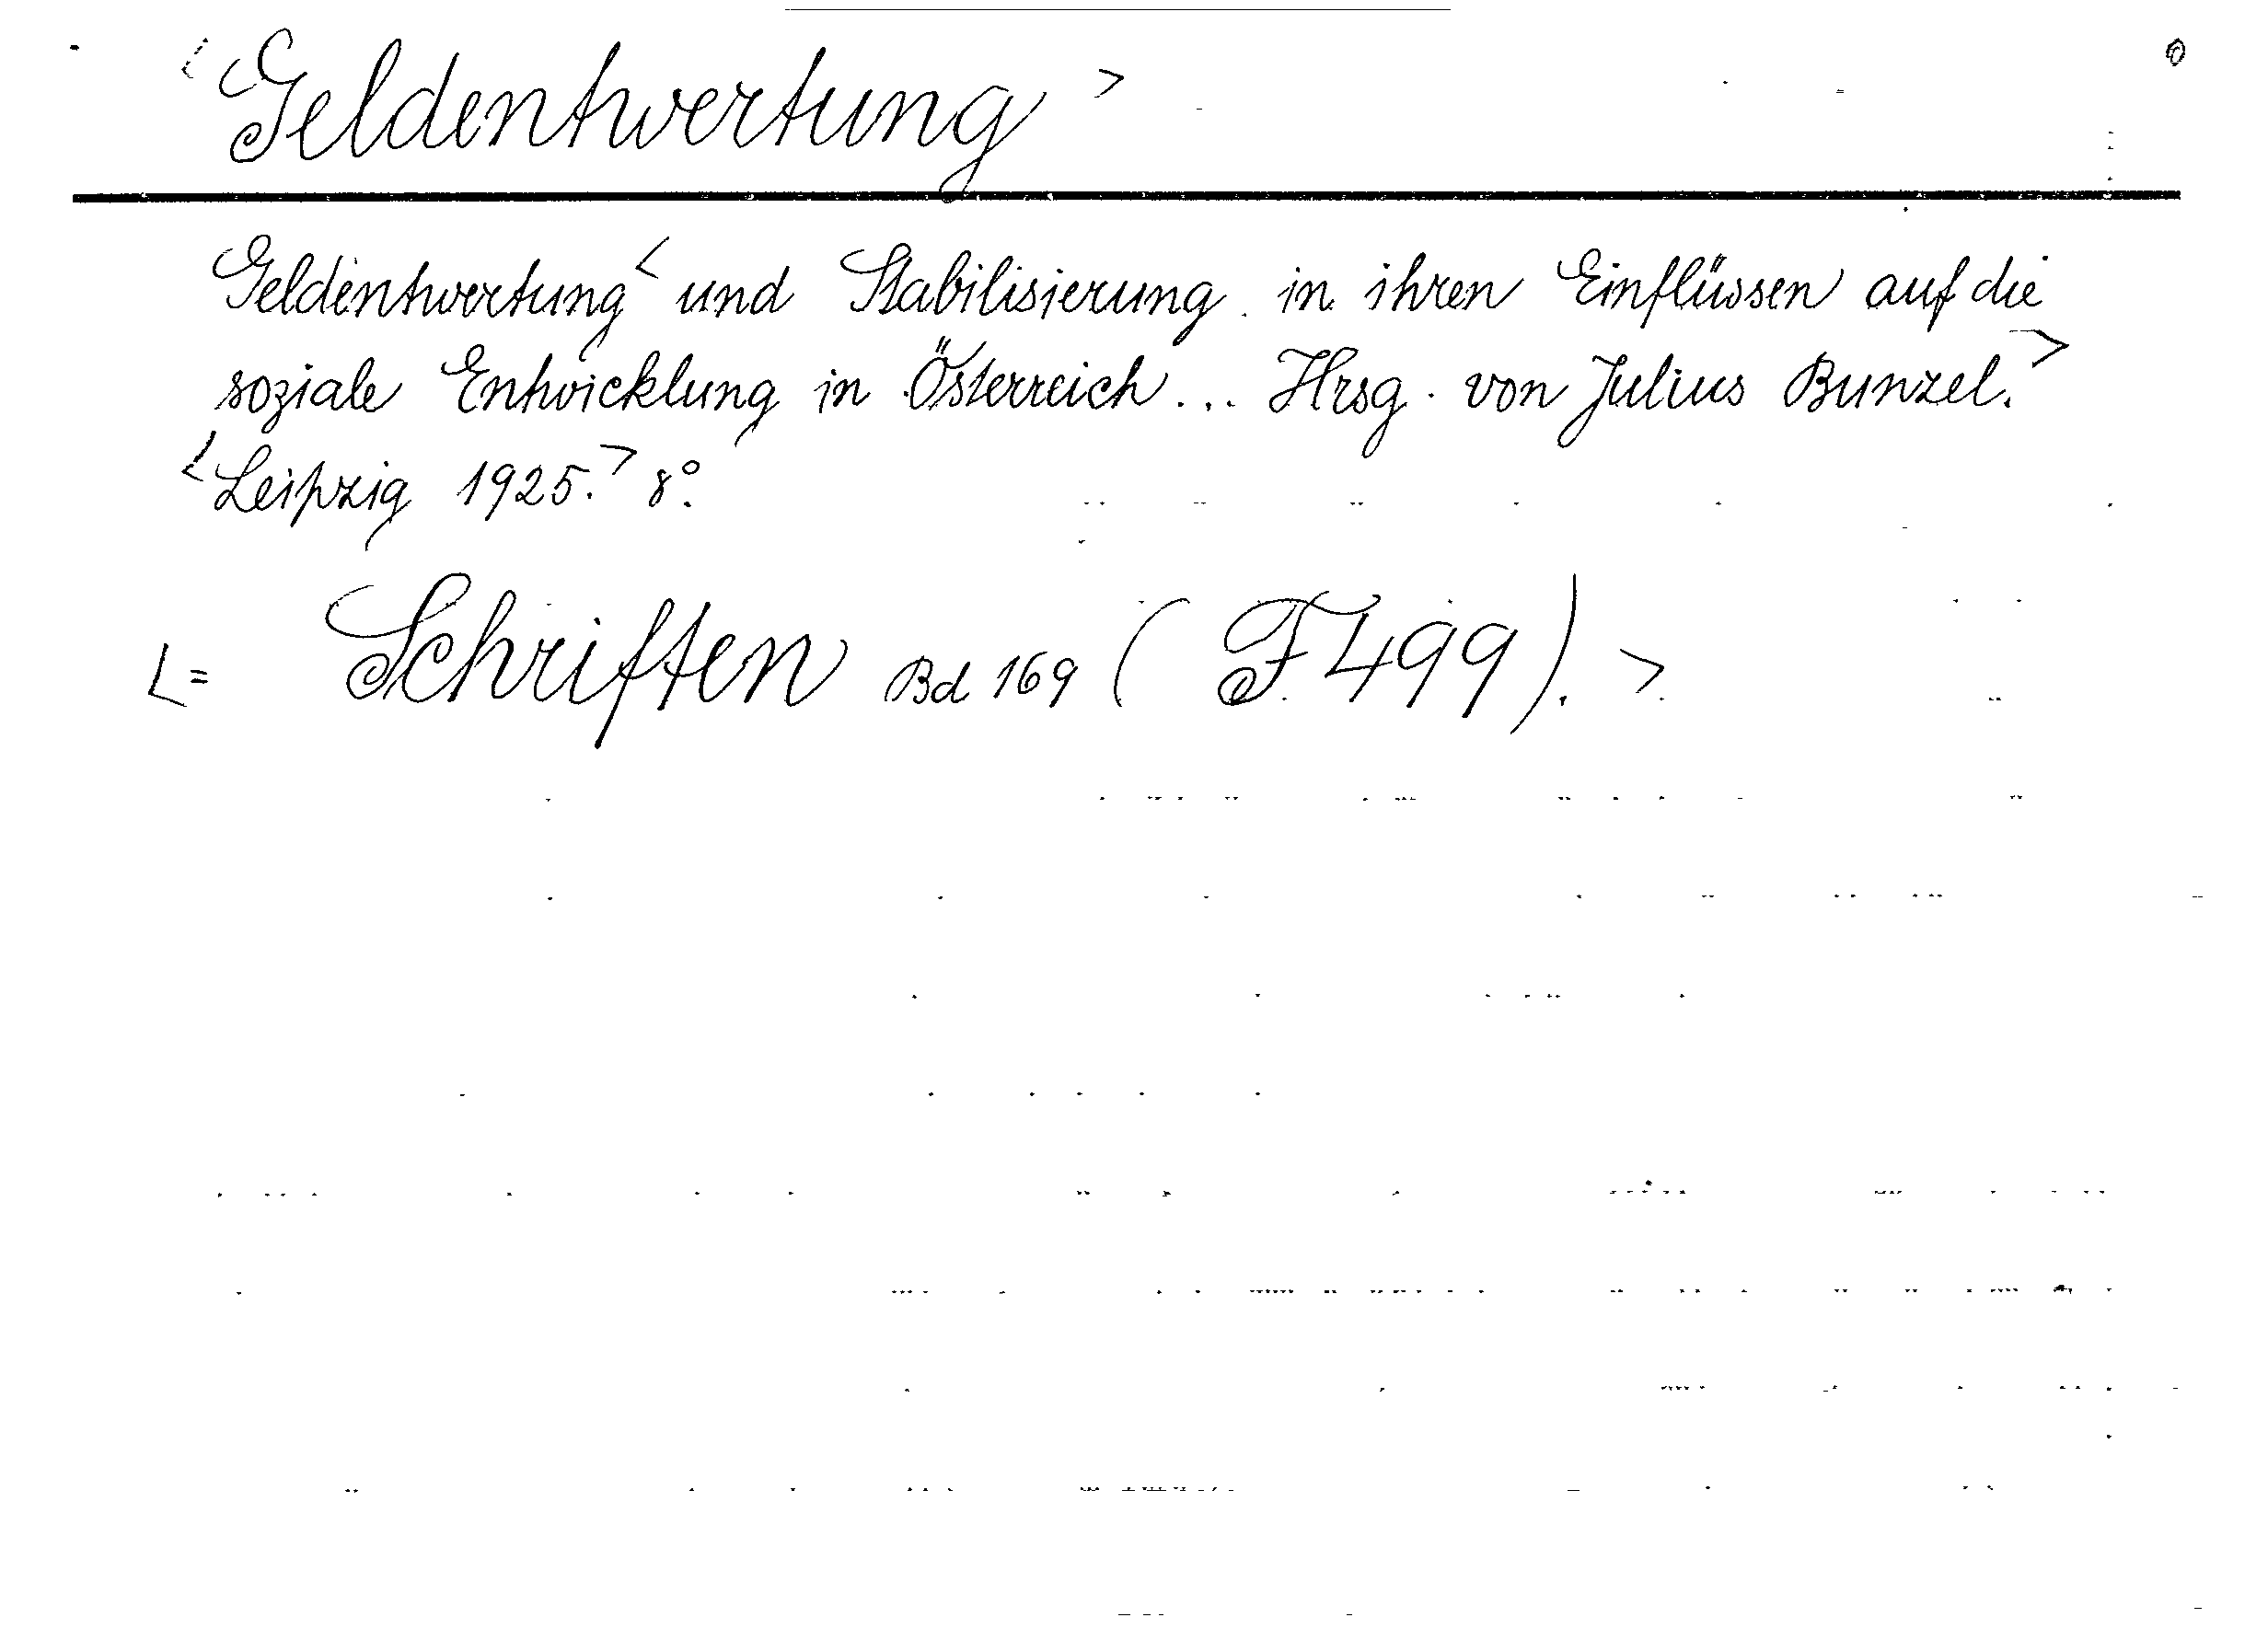 < Geldentwertung >
Geldentwertung < und Stabilisierung in ihren Einflüssen auf die
soziale Entwicklung in Österreich ... Hrsg. von Julius Bunzel. >
< Leipzig 1925. > 8°.
< = Schriften Bd 169 ( F 499 ). >